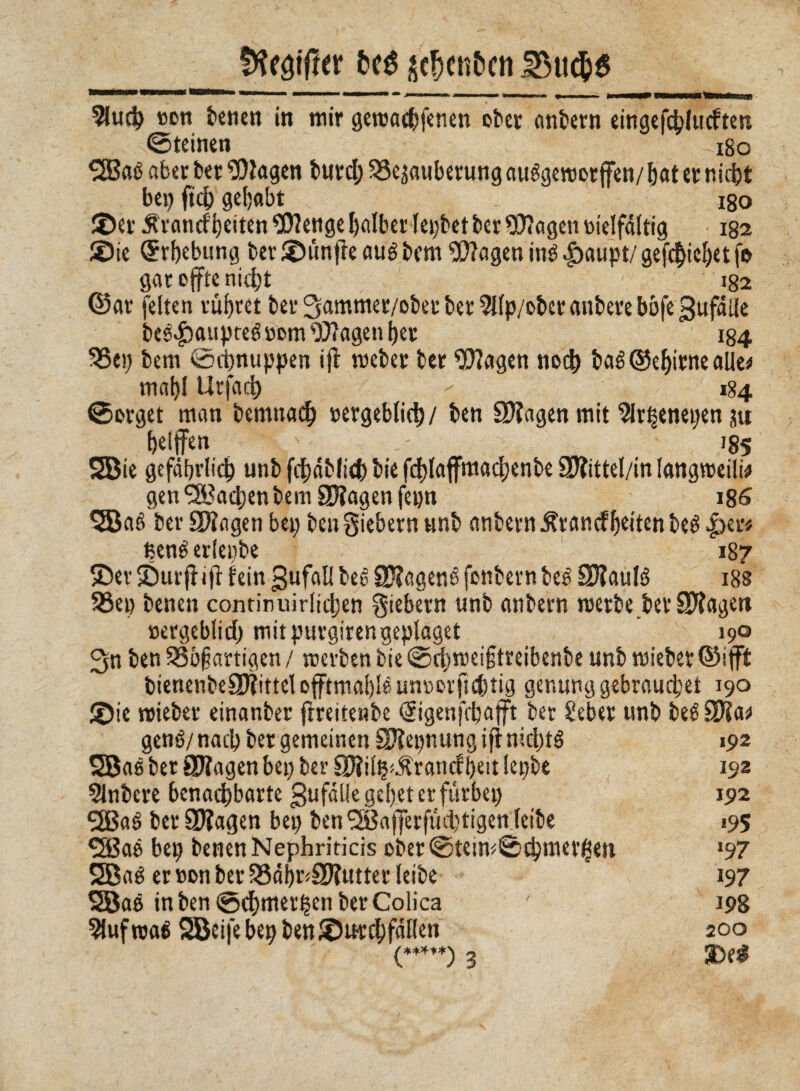 Register des zehenden Buchs
Auch von denen in mir gewachsenen oder andern eingeschluckten
Steinen 180
Was aber der Magen durch Bezauberung ausgeworffen/hat er nicht
bey sich gehabt 180
Der Kranckheiten Menge halber leydet der Magen vielfältig 182
Die Erhebung der Dünste aus dem Magen ins Haupt/geschiehet so
gar offte nicht 182
Gar selten rühret der Jammer/oder der Alp/oder andere böse Zufälle
des Haupres vom Magen her 184
Bey dem Schnuppen ist weder der Magen noch das Gehirne alle-
mahl Ursach 184
Sorget man demnach vergeblich/ den Magen mit Artzeneyen zu
helffen 185
Wie gefährlich und schädlich die schlaffmachende Mittel/in langweili-
gen Wachen dem Magen seyn 186
Was der Magen bey den Fiebern und andern Kranckheiten des Her-
tzens erleyde 187
Der Durst ist kein Zufall des Magens sondern des Mauls 188
Bey denen continuirlichen Fiebern und andern werde der Magen
vergeblich mit purgiren geplaget 190
In den Bößartigen / werden die Schweißtreibende und wieder Gifft
dienende Mittel offtmahls unvorsichtig genung gebrauchet 190
Die wieder einander streitende Eigenschafft der Leber und des Ma-
gens/nach der gemeinen Meynung ist nichts 192
Was der Magen bey der Miltz-Kranckheit leyde 192
Andere benachbarte Zufälle gehet er fürbey 192
Was der Magen bey den Wassersüchtigen leide 195
Was bey denen Nephriticis oder Stein-Schmertzen 197
Was er von der Bähr-Mutter leide 197
Was in den Schmertzen der Colica 198
Auf was Weise bey den Durchfällen 200
(*****) 3 Des